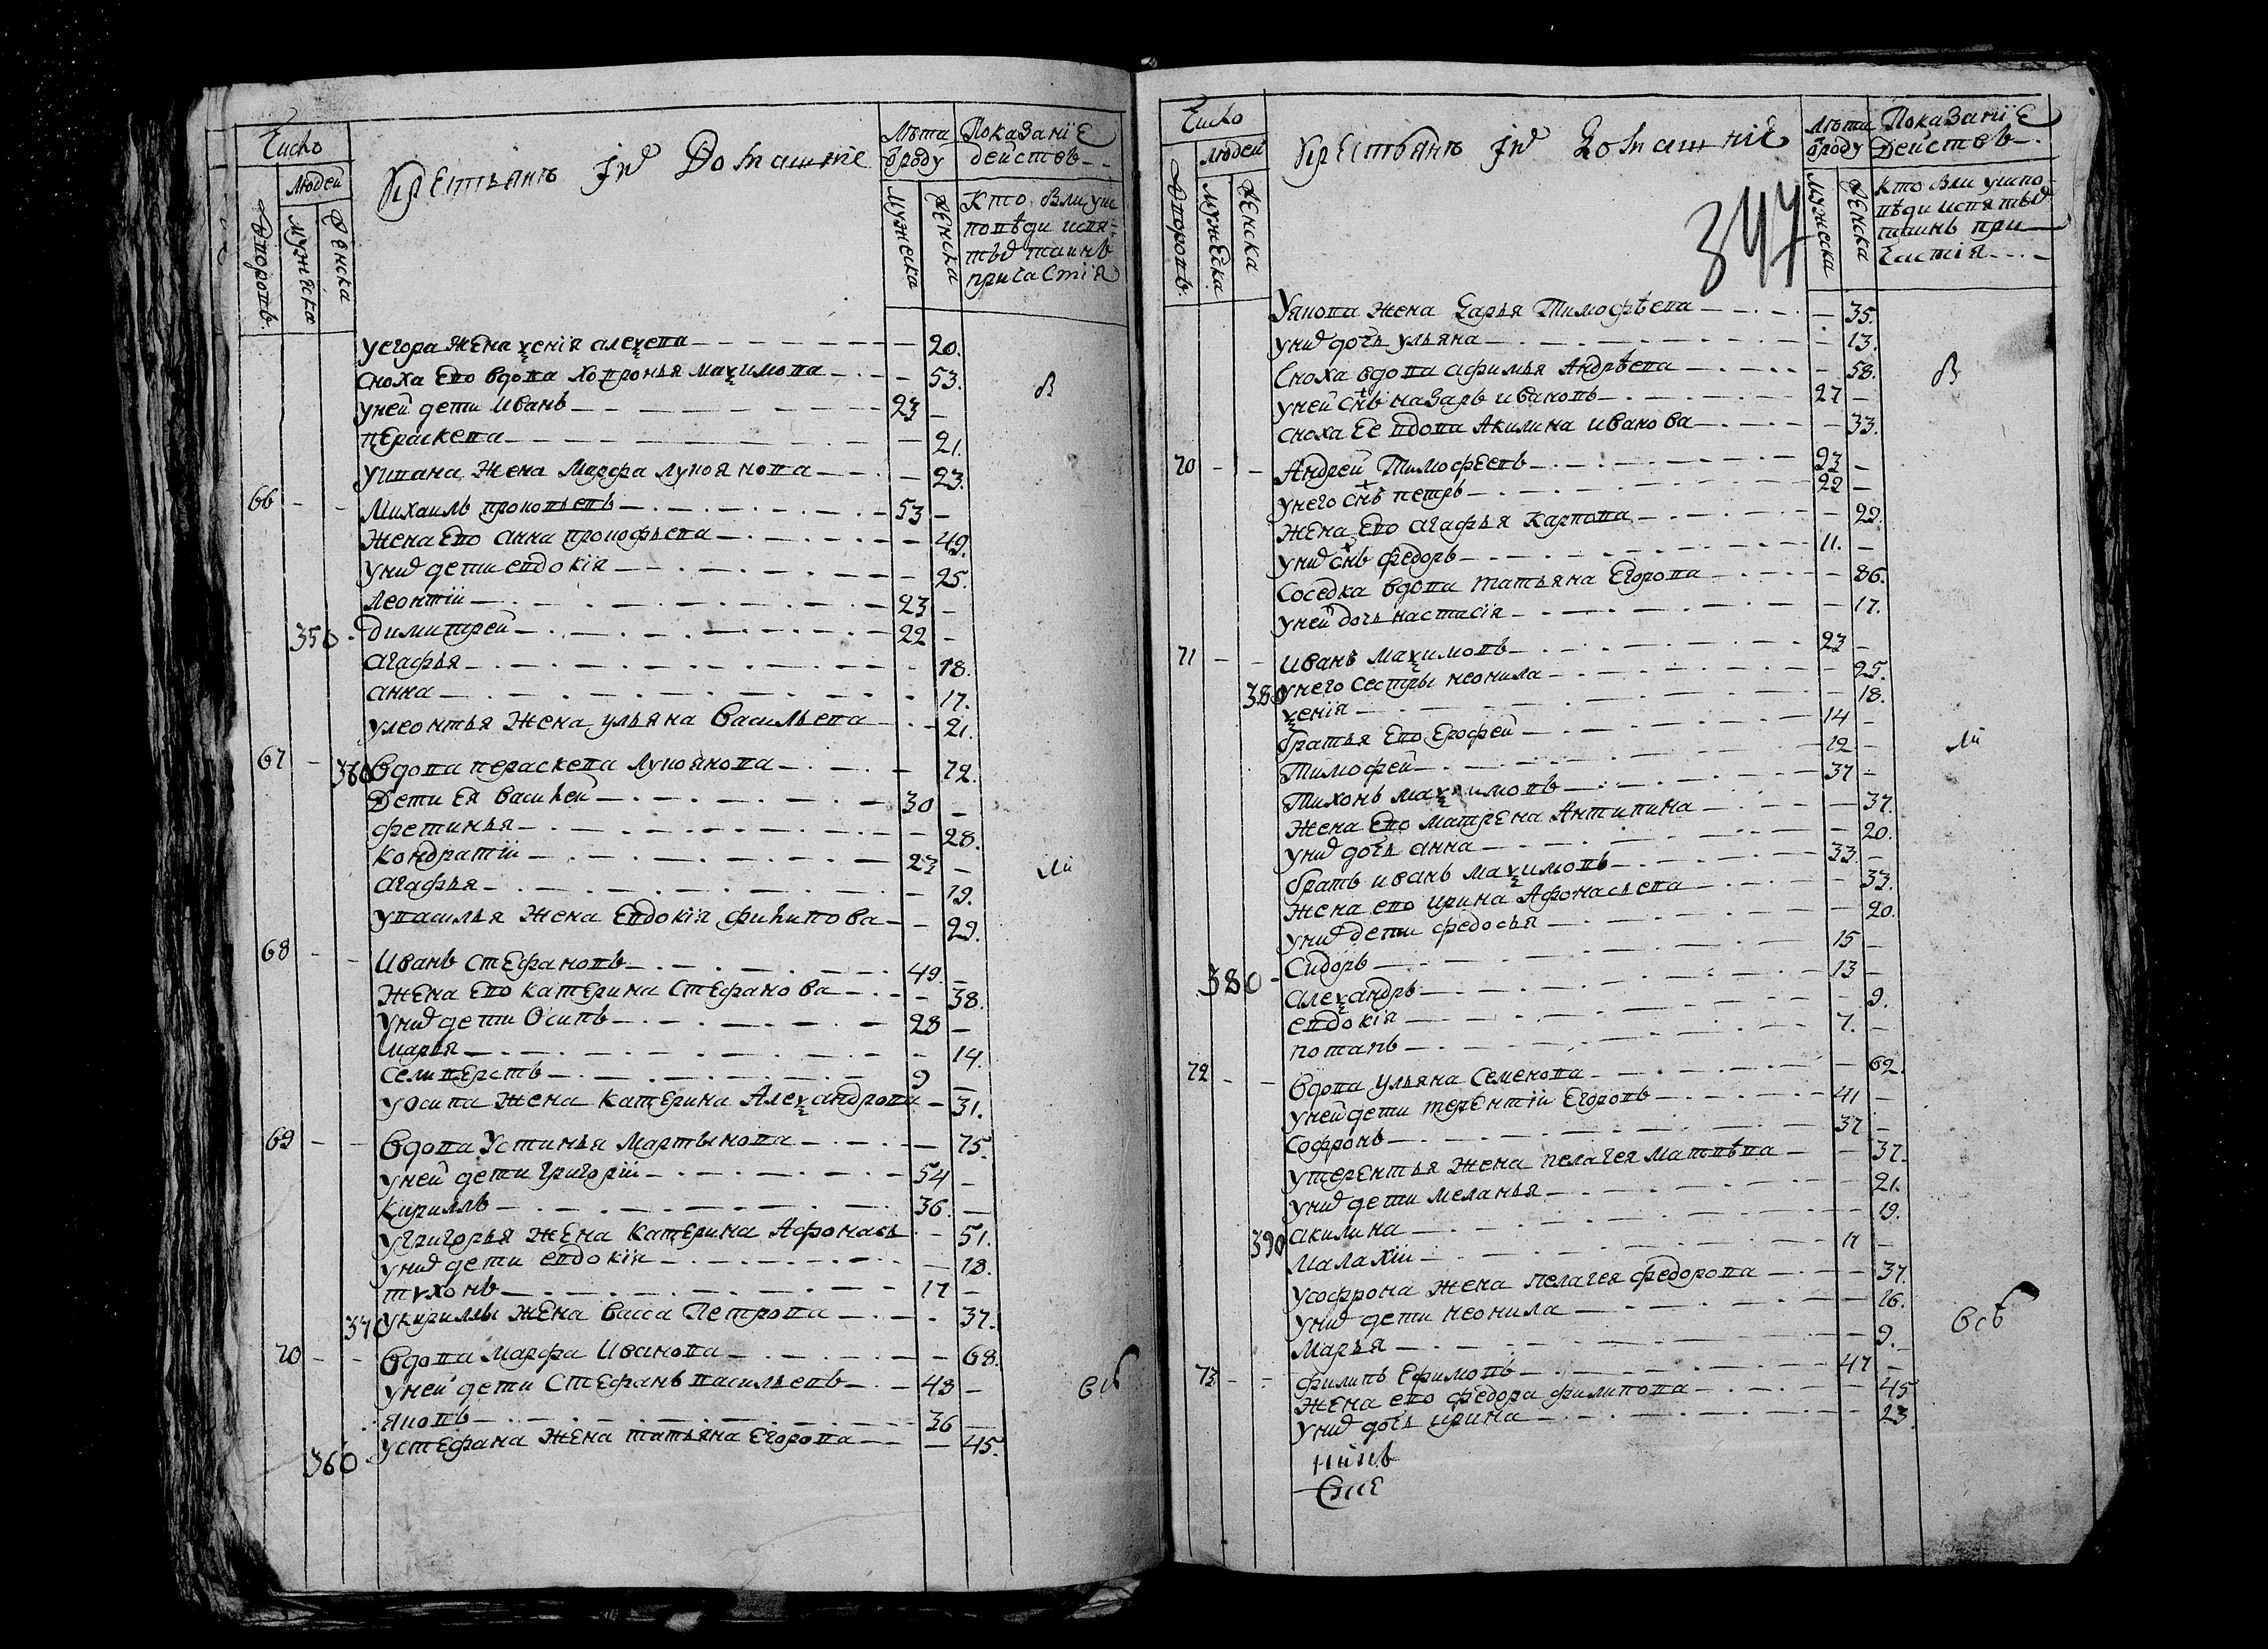 Число
Людей
Дворовъ.
Мужеска
Женска
Крестьянъ ихъ Домашние
Лѣта
ѿроду
Мужеска
Женска
Показаніе
действъ
Кто былъ уис
поведи исвя
тыхъ таинъ
причастія
уегора жена ѯенія алеѯева 20.
сноха его вдова ховронья маѯимова 53.
уней дети иванъ 23 в
параскева 21.
уивана жена марфа лукоянова 23.
66 Михаилъ прокопьевъ 53
жена его анна прокофьева 49.
унихъ дети евдокія 25.
леонтіи 23
350 димитрей 22
агафья 18.
анна 17.
улеонтья жена ульяна васильева 21.
67 360 вдова параскева лукоянова 72.
Дети ея василей 30
фетинья 28.
кондратіи 23
агафья 19.
увасилья жена евдокія филипова 29.
68 Иванъ стефановъ 49
жена его катерина стефанова 38.
унихъ дети осипъ 28
марья 14.
селиверстъ 9
уосипа жена катерина Алеѯандрова 31.
69 вдова устинья мартынова 75.
уней дети григоріи 54
кириллъ 36.
угригорья жена катерина Афонась 51.
унихъ дети евдокія 18.
тѵхонъ 17
370 укириллы жена васса петрова 37.
70 вдова марфа иванова 68.
уней дети стефанъ васильевъ 48
яковъ 36
360 устефана жена татьяна егорова 45.
Число
Людей
Дворовъ.
Мужеска
Женска
Крестьянъ ихъ Домашние
347
Лѣта
ѿроду
Мужеска
Женска
Показаніе
Действъ
Кто был уиспо
вѣди исвятыхъ
таинъ при
частія
Уякова жена Дарья Тимофѣева 35.
унихъ дочь ульяна 13.
Сноха вдова афимья Андрѣева 58. в
уней снъ назаръ ивановъ 27
сноха ее вдова Акилина иванова 33.
70 Андрей Тимофеевъ 23
унего снъ петръ 22
жена его агафья карпова 22.
унихъ снъ федоръ 11.
соседка вдова татьяна егорова 86.
уней дочь настасія 17.
71 иванъ маѯимовъ 23
380 унего сестры неонила 25.
ѯенія 18.
братья его ерофей 14
тимофей 12
тихонъ маѯимовъ 37
жена его матрена антипина 37.
унихъ дочь анна 20.
братъ иванъ маѯимовъ 33
жена его ирина Афонасьева 33.
унихъ дети федосья 20.
Сидоръ 15
380 алеѯандръ 13
евдокія 9.
потапъ 7.
72 вдова ульяна семенова 62.
уней дети терентіи егоровъ 41
Софронъ 37
утерентья жена пелагея матвѣва 37.
унихъ дети меланья 21.
акилина 19.
390 Малахіи 11
усофрона жена пелагея федорова 37.
унихъ дети неонила 16.
Марья 9.
73 филипъ ефимовъ 47
жена его федора филипова 45
унихъ дочь ирина 23.